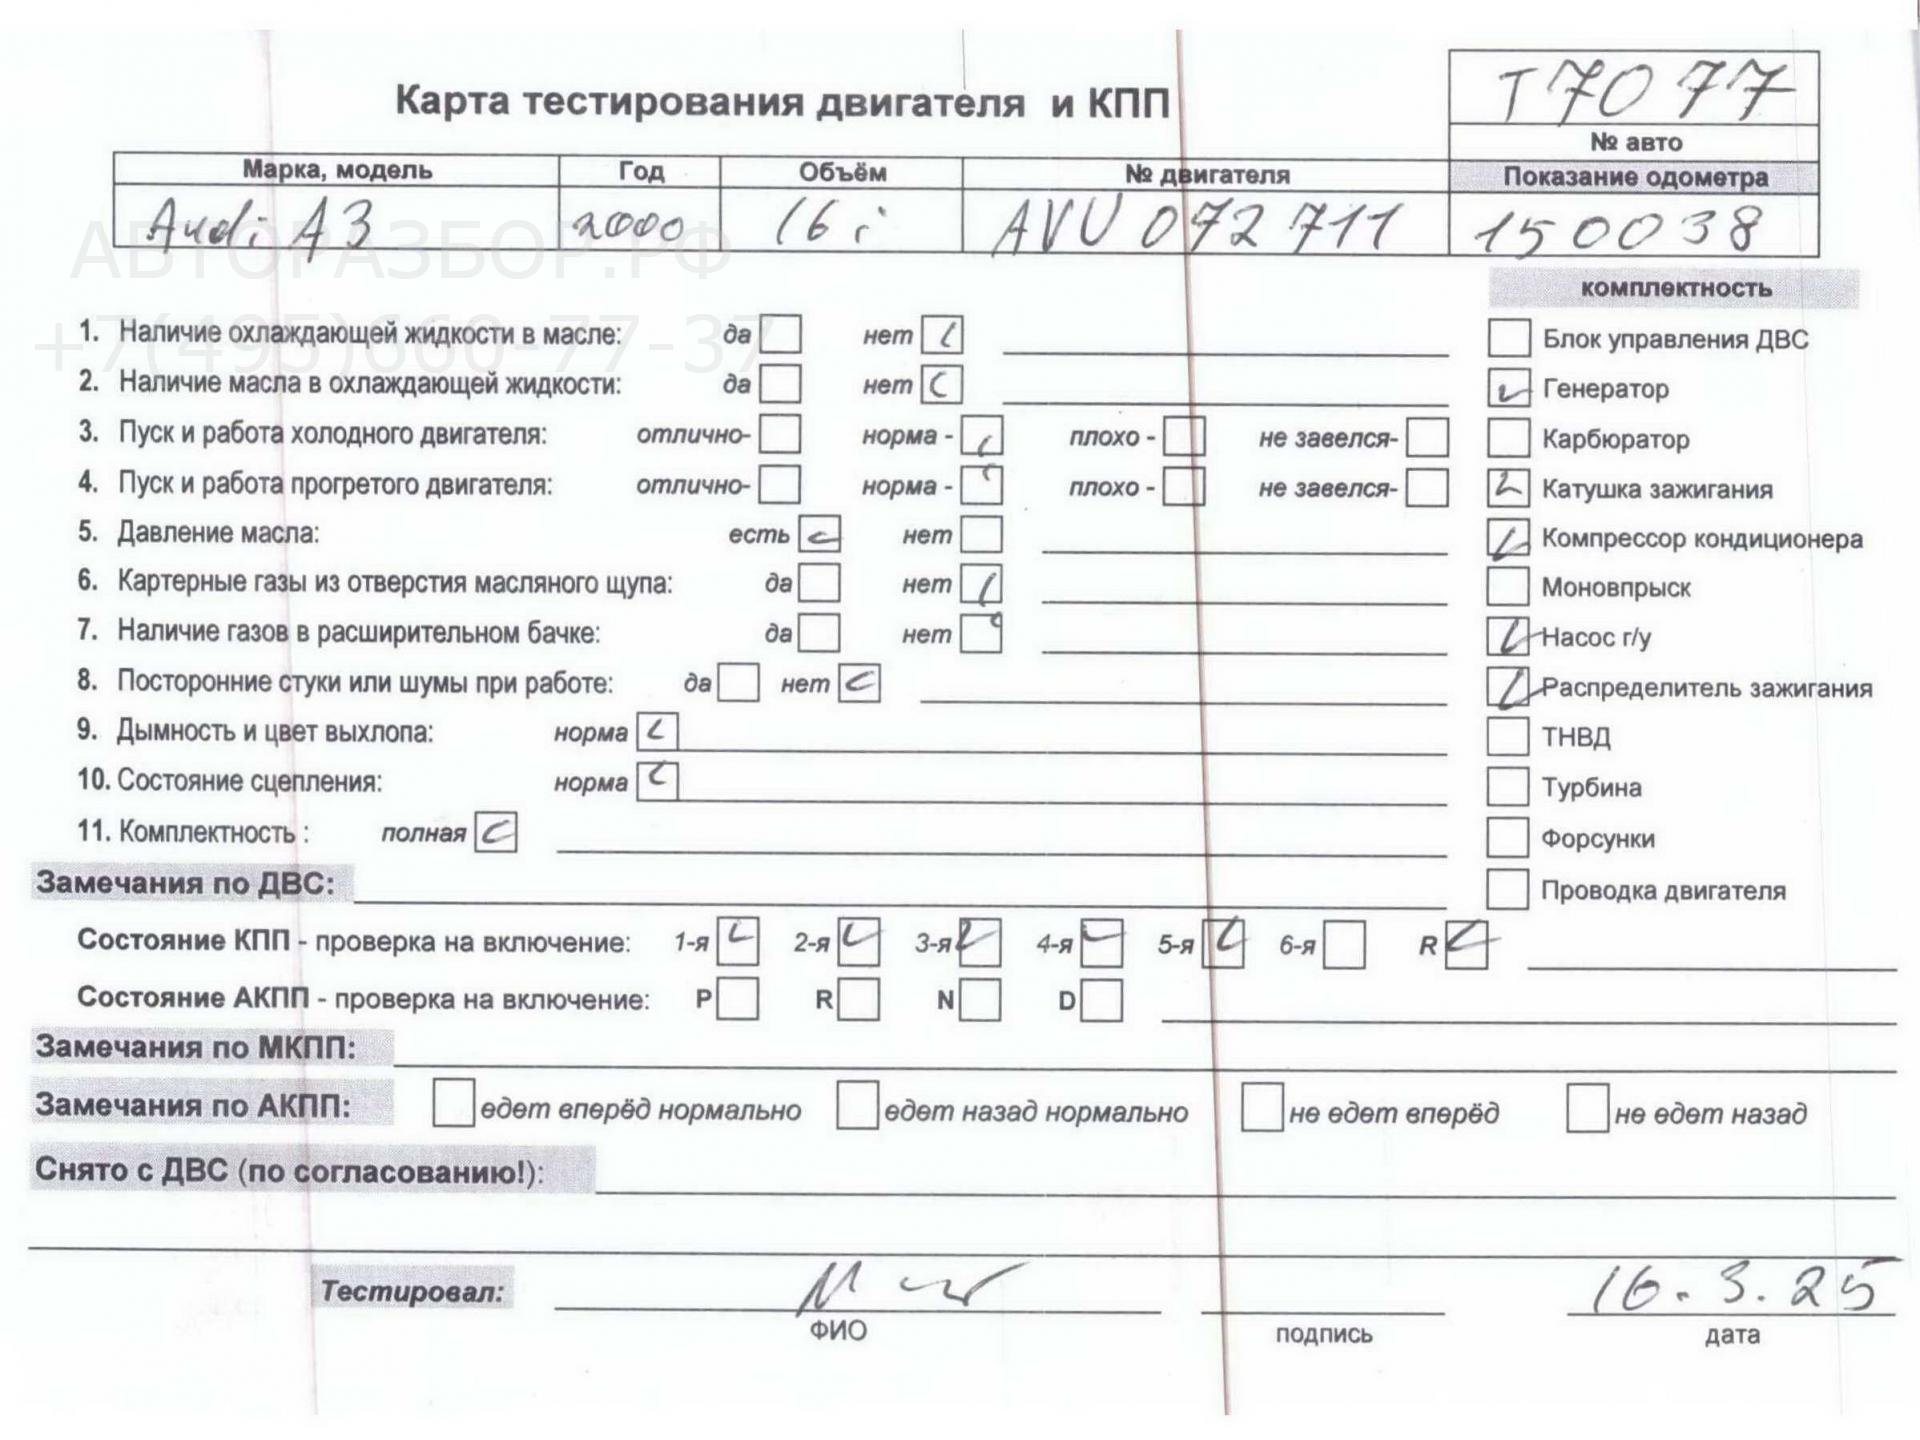 Карта тестирования двигателя и КПП
T7077
№ авто
Марка, модель Год Объём № двигателя Показание одометра
Audi A3 2000 16 i AVU 072711 150038
АВТОРАЗБОР.РФ
+7(495)660-77-37
комплектность
1. Наличие охлаждающей жидкости в масле: да нет
Блок управления ДВС
2. Наличие масла в охлаждающей жидкости: да нет
Генератор
3. Пуск и работа холодного двигателя: отлично- норма - плохо - не завелся-
Карбюратор
4. Пуск и работа прогретого двигателя: отлично- норма - плохо - не завелся-
Катушка зажигания
5. Давление масла: есть нет
Компрессор кондиционера
6. Картерные газы из отверстия масляного щупа: да нет
Моновпрыск
7. Наличие газов в расширительном бачке: да нет
Насос г/у
8. Посторонние стуки или шумы при работе: да нет
Распределитель зажигания
9. Дымность и цвет выхлопа: норма
ТНВД
10. Состояние сцепления: норма
Турбина
11. Комплектность : полная
Форсунки
Замечания по ДВС:
Проводка двигателя
Состояние КПП - проверка на включение: 1-я 2-я 3-я 4-я 5-я 6-я R
Состояние АКПП - проверка на включение: P R N D
Замечания по МКПП:
Замечания по АКПП: едет вперёд нормально едет назад нормально не едет вперёд не едет назад
Снято с ДВС (по согласованию!):
Тестировал: 16.3.25
ФИО подпись дата